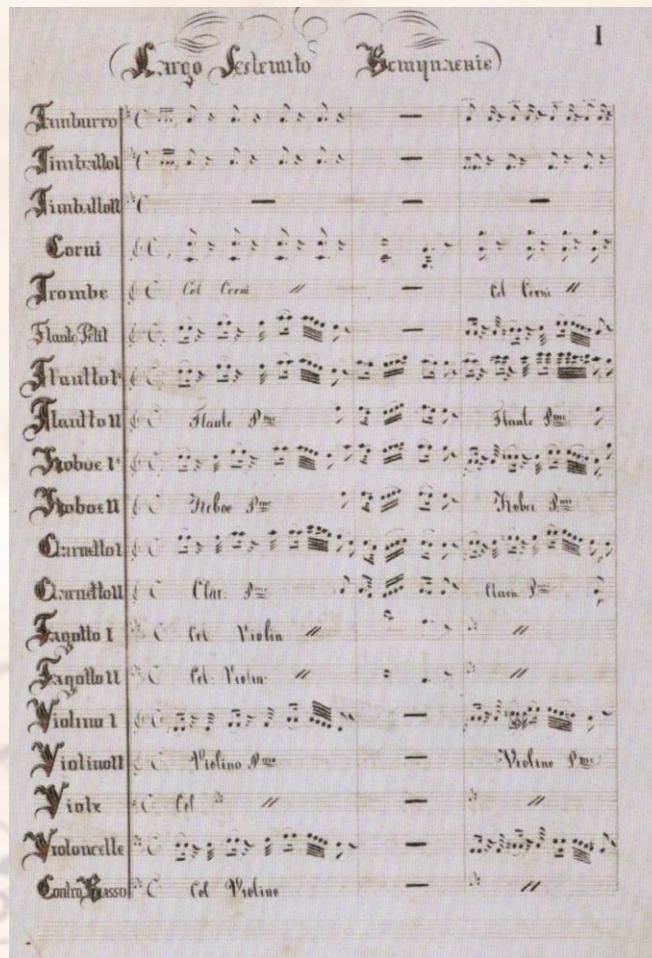 I
(Largo Sostenuto
Tamburro
Timballo I
Timballo II
Corni
Trombe Col Corni Col Corni
Flauto Petit
Flautto I°
Flautto II Flaute Pmo Flaute Pmo
Hoboe I°
Hoboe II Hoboe Pmo Hoboe Pmo
Clarnetto I
Clarnetto II Clar. Pmo Claro. Pmo
Fagotto I Col Violin
Fagotto II Col Violin
Violino I
Violino II Violino Pmo Violino Pmo
Viole Col
Violoncelle
Contro Basso Col Violino